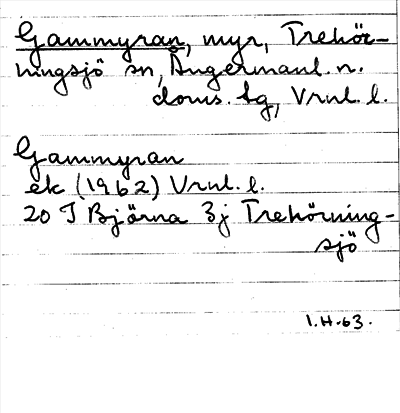 Gammyran, myr, Trehör-
ningsjö sn, Ångermanl. n.
doms. tg, Vrnl. l.
Gammyran
ek (1962) Vrnl. l.
20 I Björna 3j Trehörning-
sjö
I.H.63.